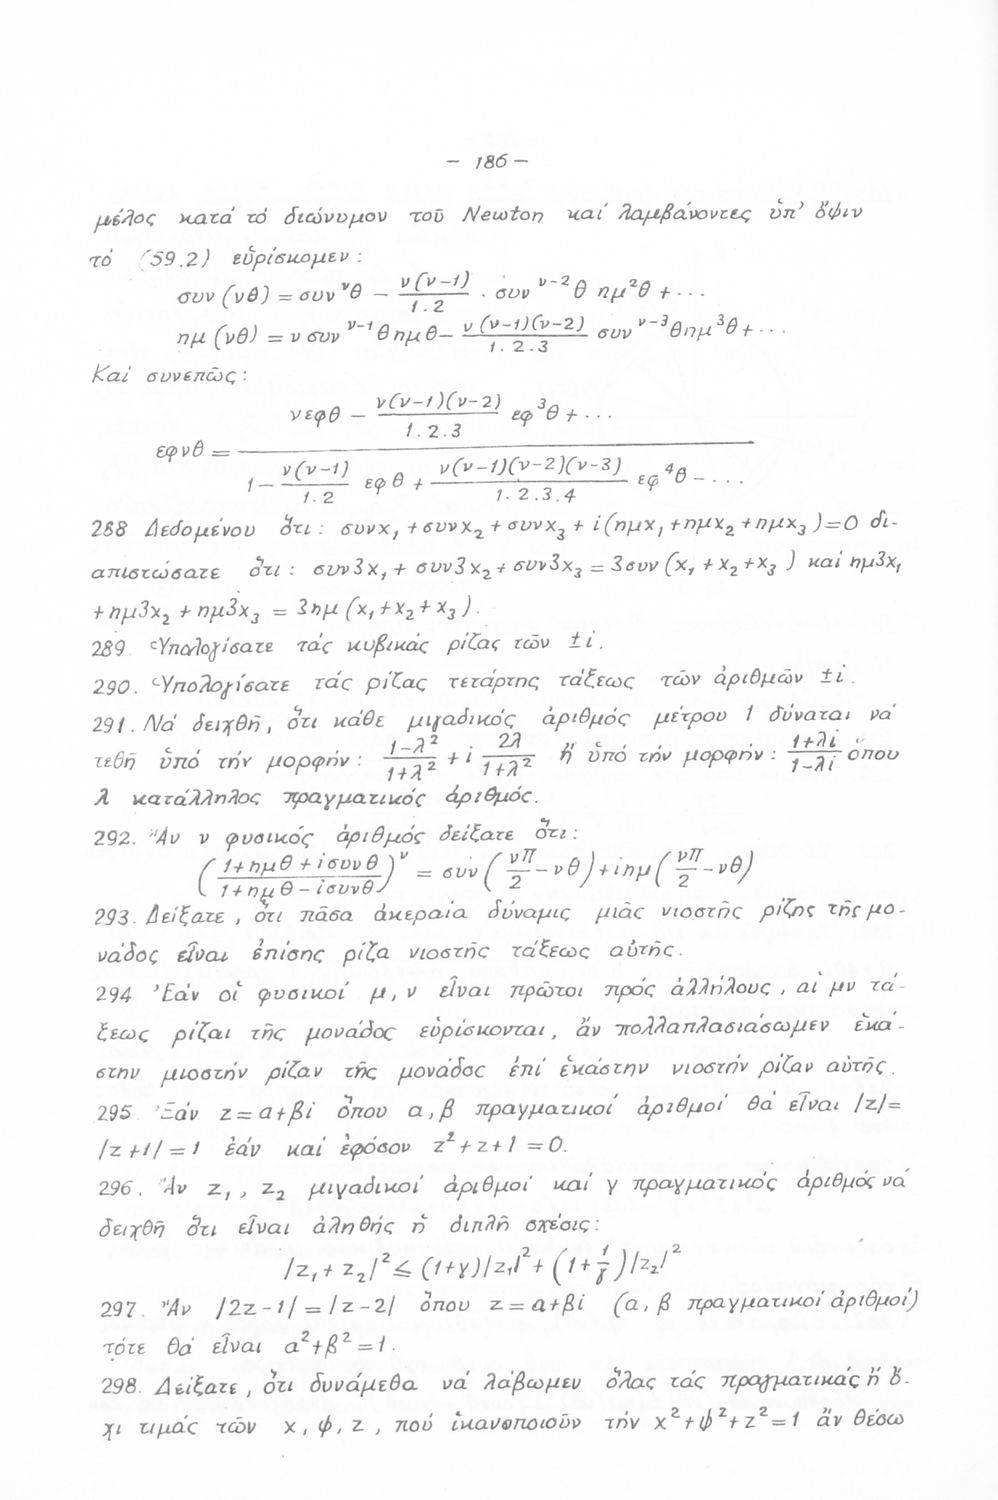 - 186 -
μέλος κατά τό διώνυμον τοῦ Newton καί λαμβάνοντες ὑπ' ὄψιν
τό (59.2) εὑρίσκομεν :
συν (νθ) = συν^νθ - ν(ν-1)/1.2 . συν^ν-2 θ ημ²θ + ...
ημ (νθ) = ν συν^ν-1 θ ημ θ - ν(ν-1)(ν-2)/1.2.3 συν^ν-3 θ ημ³θ + ...
Καί συνεπῶς :
νεφθ - ν(ν-1)(ν-2)/1.2.3 εφ³θ + ...
εφνθ =
1 - ν(ν-1)/1.2 εφ θ + ν(ν-1)(ν-2)(ν-3)/1.2.3.4 εφ⁴θ - ...
288 Δεδομένου ὅτι : συνx₁ + συνx₂ + συνx₃ + i(ημx₁ + ημx₂ + ημx₃) = 0 δι-
απιστώσατε ὅτι : συν3x₁ + συν3x₂ + συν3x₃ = 3συν (x₁ + x₂ + x₃) καί ημ3x₁
+ ημ3x₂ + ημ3x₃ = 3ημ (x₁ + x₂ + x₃).
289 Ὑπολογίσατε τάς κυβικάς ρίζας τῶν ± i.
290. Ὑπολογίσατε τάς ρίζας τετάρτης τάξεως τῶν ἀριθμῶν ± i.
291. Νά δειχθῆ, ὅτι κάθε μιγαδικός ἀριθμός μέτρου 1 δύναται νά
τεθῆ ὑπό τήν μορφήν : 1-λ²/1+λ² + i 2λ/1+λ² ἤ ὑπό τήν μορφήν : 1+λi/1-λi ὅπου
λ κατάλληλος πραγματικός ἀριθμός.
292. Ἄν ν φυσικός ἀριθμός δείξατε ὅτι :
(1+ημθ + iσυνθ / 1+ημθ - iσυνθ)^ν = συν (νπ/2 - νθ) + iημ (νπ/2 - νθ)
293. Δείξατε, ὅτι πᾶσα ἀκεραία δύναμις μιᾶς νιοστῆς ρίζης τῆς μο-
νάδος εἶναι ἐπίσης ρίζα νιοστῆς τάξεως αὐτῆς.
294 Ἐάν οἱ φυσικοί μ, ν εἶναι πρῶτοι πρός ἀλλήλους, αἱ μν τά-
ξεως ρίζαι τῆς μονάδος εὑρίσκονται, ἄν πολλαπλασιάσωμεν ἑκά-
στην μιοστήν ρίζαν τῆς μονάδος ἐπί ἑκάστην νιοστήν ρίζαν αὐτῆς.
295 Ἐάν z = α+βi ὅπου α, β πραγματικοί ἀριθμοί θά εἶναι |z| =
|z+1| = 1 ἐάν καί ἐφόσον z² + z + 1 = 0.
296. Ἄν z₁, z₂ μιγαδικοί ἀριθμοί καί γ πραγματικός ἀριθμός νά
δειχθῆ ὅτι εἶναι ἀληθής ἡ διπλῆ σχέσις :
|z₁ + z₂|² ≤ (1+γ)|z₁|² + (1 + 1/γ)|z₂|²
297. Ἄν |2z-1| = |z-2| ὅπου z = α+βi (α, β πραγματικοί ἀριθμοί)
τότε θά εἶναι α² + β² = 1.
298. Δείξατε, ὅτι δυνάμεθα νά λάβωμεν ὅλας τάς πραγματικάς ἤ ὄ-
χι τιμάς τῶν x, ψ, z, πού ἱκανοποιοῦν τήν x² + ψ² + z² = 1 ἄν θέσω